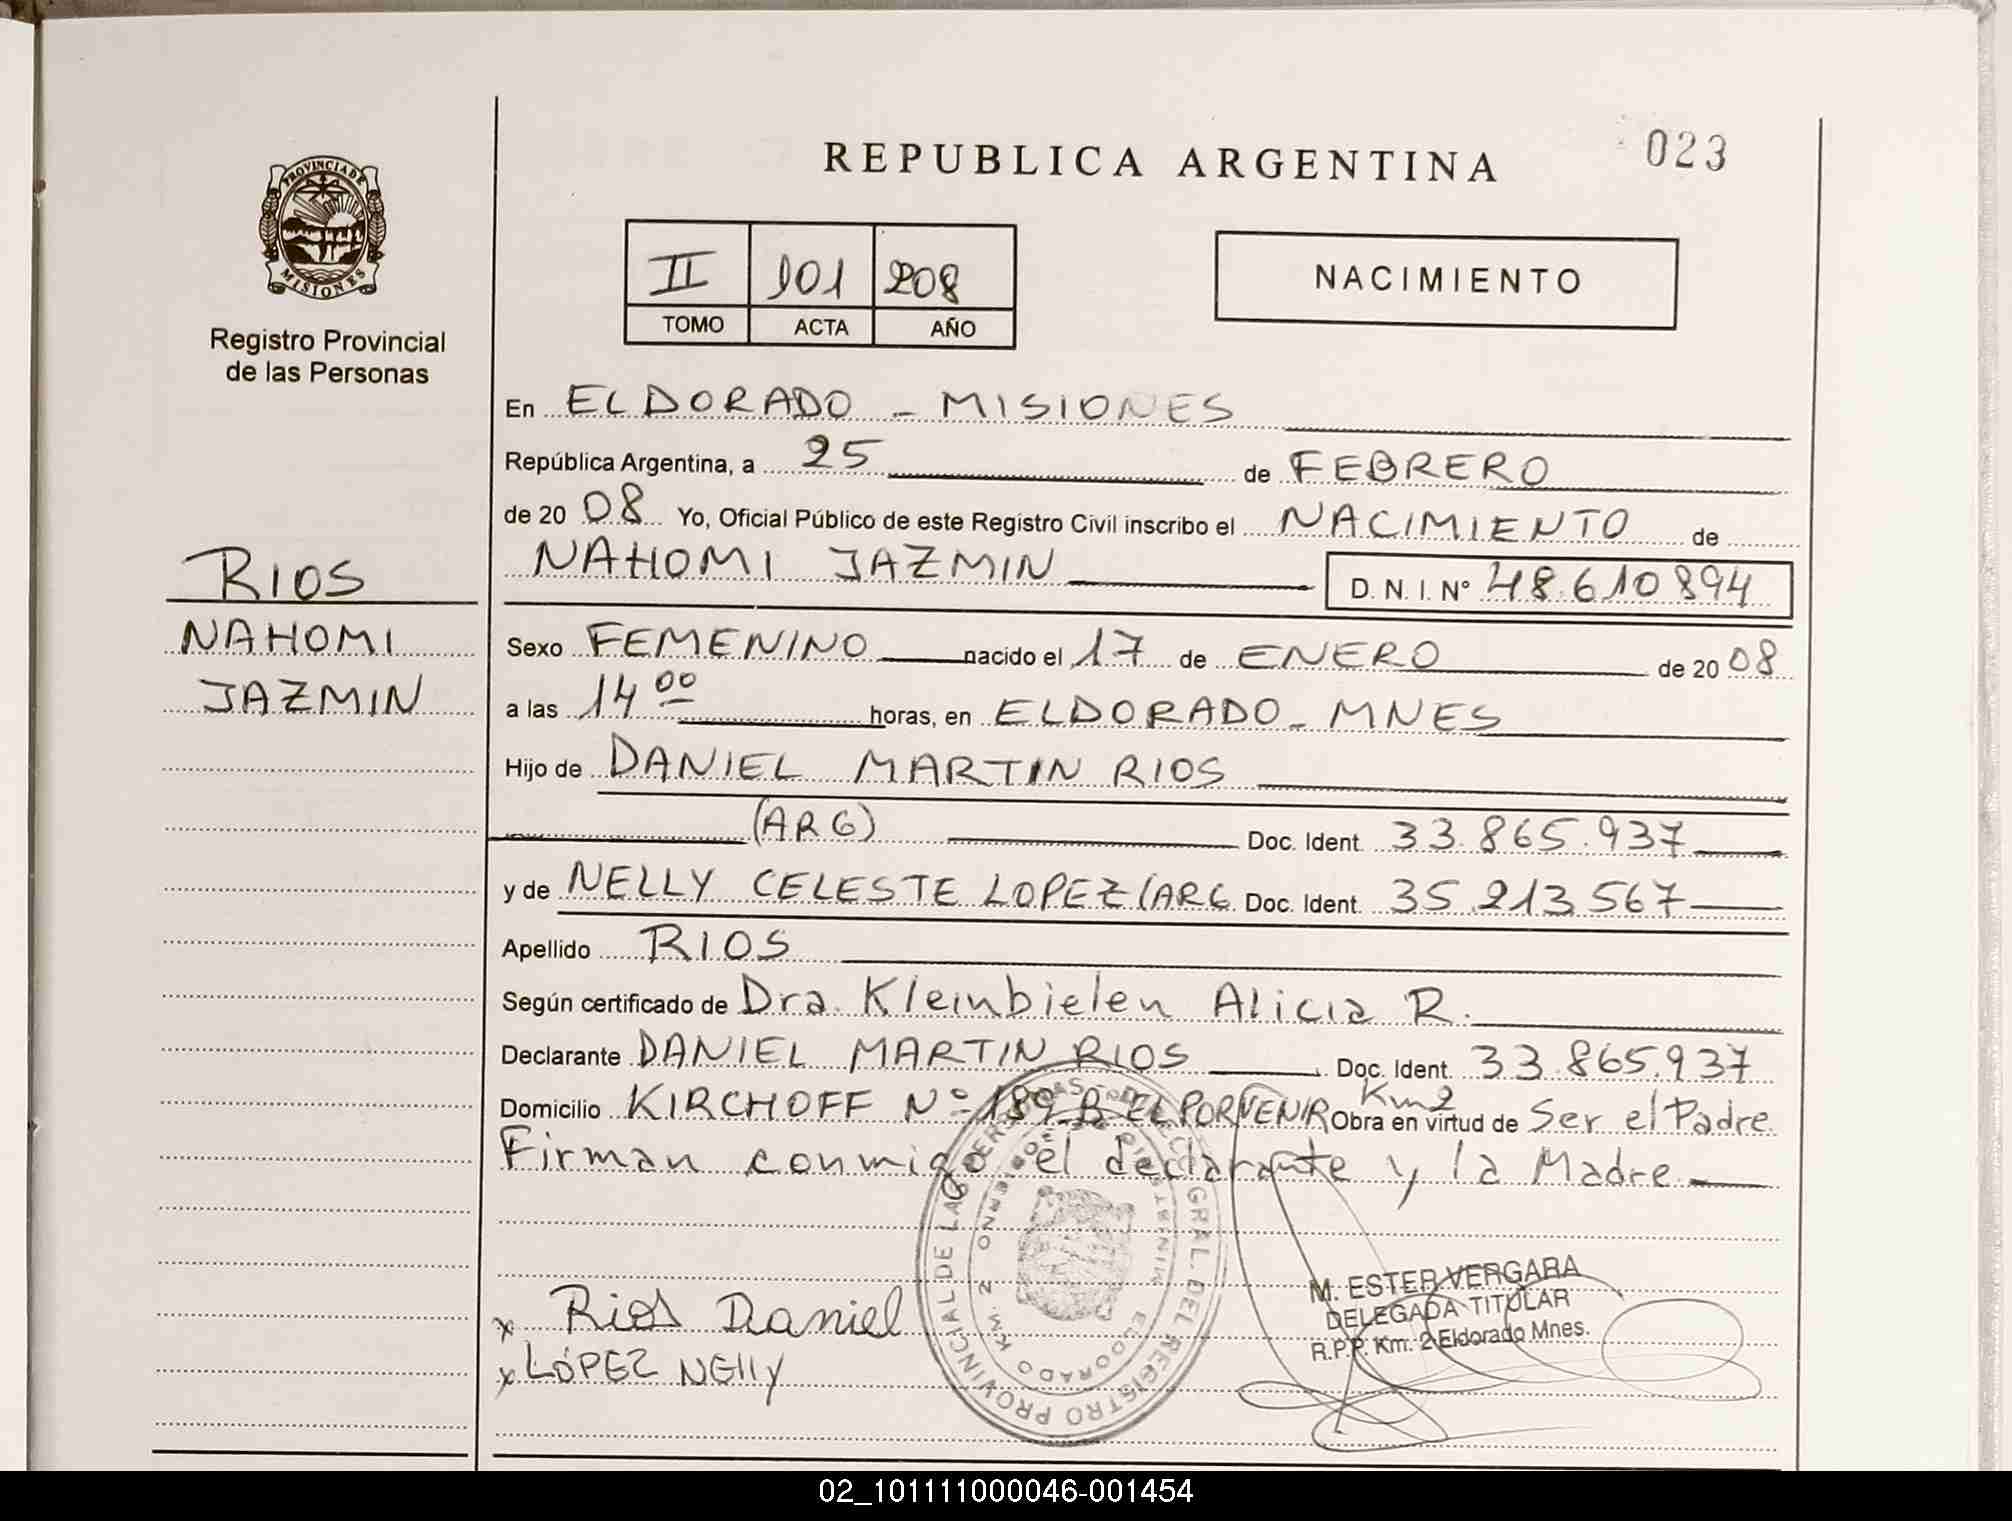 REPUBLICA ARGENTINA
023
PROVINCIA DE
MISIONES
Registro Provincial
de las Personas
II 101 208
TOMO ACTA AÑO
NACIMIENTO
En ELDORADO - MISIONES
República Argentina, a 25 de FEBRERO
de 20 08 Yo, Oficial Público de este Registro Civil inscribo el NACIMIENTO de
NAHOMI JAZMIN D. N. I. Nº 48.610894
RIOS
NAHOMI
JAZMIN
Sexo FEMENINO nacido el 17 de ENERO de 20 08
a las 14 00 horas, en ELDORADO - MNES
Hijo de DANIEL MARTIN RIOS
(ARG) Doc. Ident. 33.865.937
y de NELLY CELESTE LOPEZ (ARG Doc. Ident. 35.213567
Apellido RIOS
Según certificado de Dra. Kleinbielen Alicia R.
Declarante DANIEL MARTIN RIOS Doc. Ident. 33.865.937
Domicilio KIRCHOFF Nº 189 Bº EL PORVENIR Km2 Obra en virtud de Ser el Padre
Firman conmigo el declarante y la Madre
x Rios Daniel
x LÓPEZ NEllY
GRAL. DEL REGISTRO PROVINCIAL DE LAS PERSONAS
ELDORADO KM. 2
M. ESTER VERGARA
DELEGADA TITULAR
R.P.P. Km. 2 Eldorado Mnes.
02_101111000046-001454